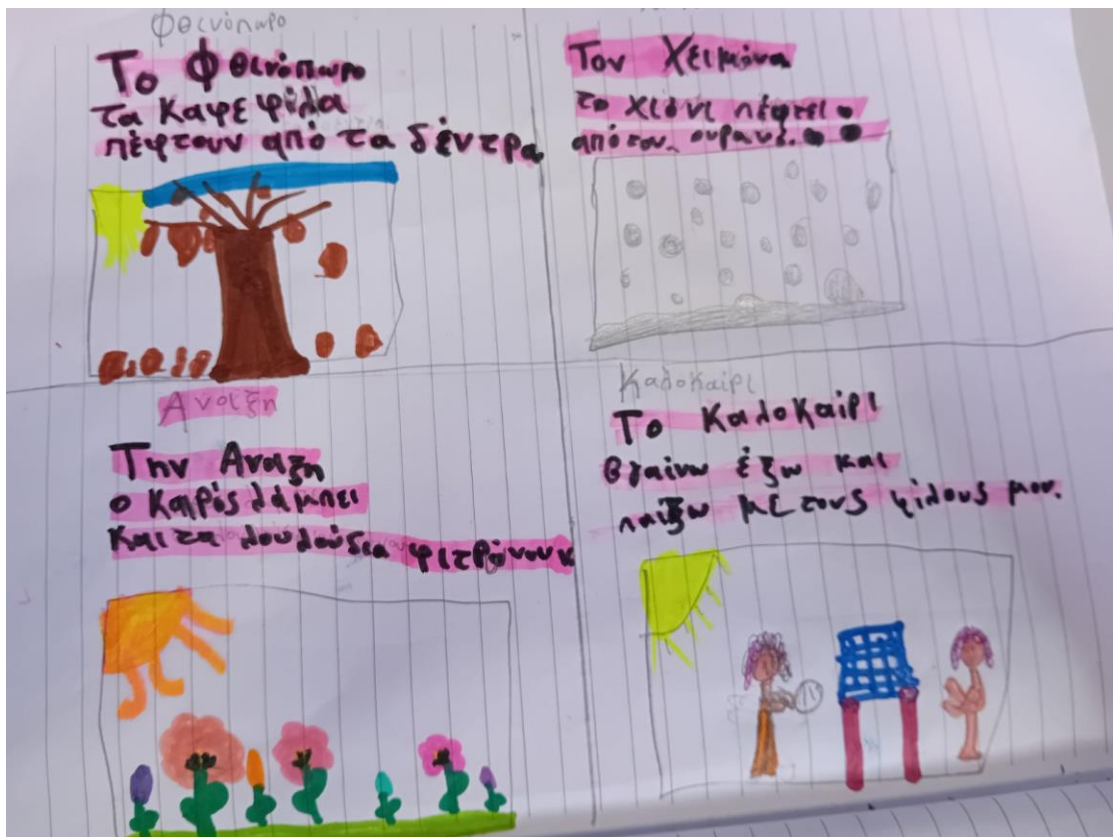 Φθινόπωρο
Το Φθινόπωρο
τα καφε φίλα
πέφτουν από τα δέντρα
Τον Χειμώνα
το χιόνι πέφτει
από τον ουρανό.
Ανοιξη
Την Ανοιξη
ο Καιρός λάμπει
Και τα λουλούδια φιτρόνουν
Καλοκαίρι
Το Καλοκαίρι
βγαίνω έξω και
παίζω με τους φίλους μου.